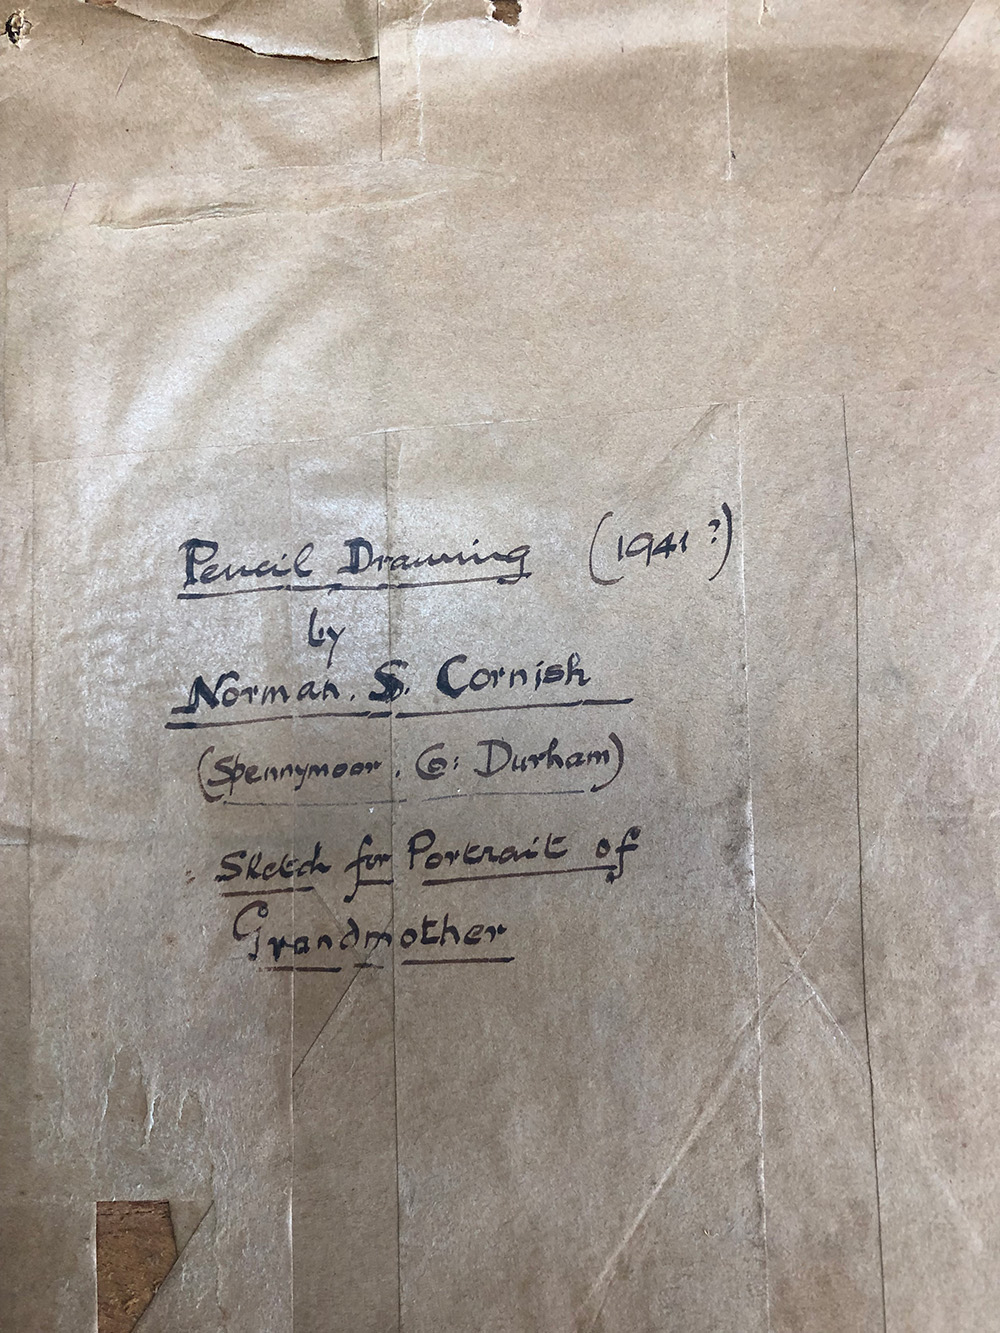 Pencil Drawing (1941?)
by
Norman. S. Cornish
(Spennymoor. Co: Durham)
Sketch for Portrait of
Grandmother